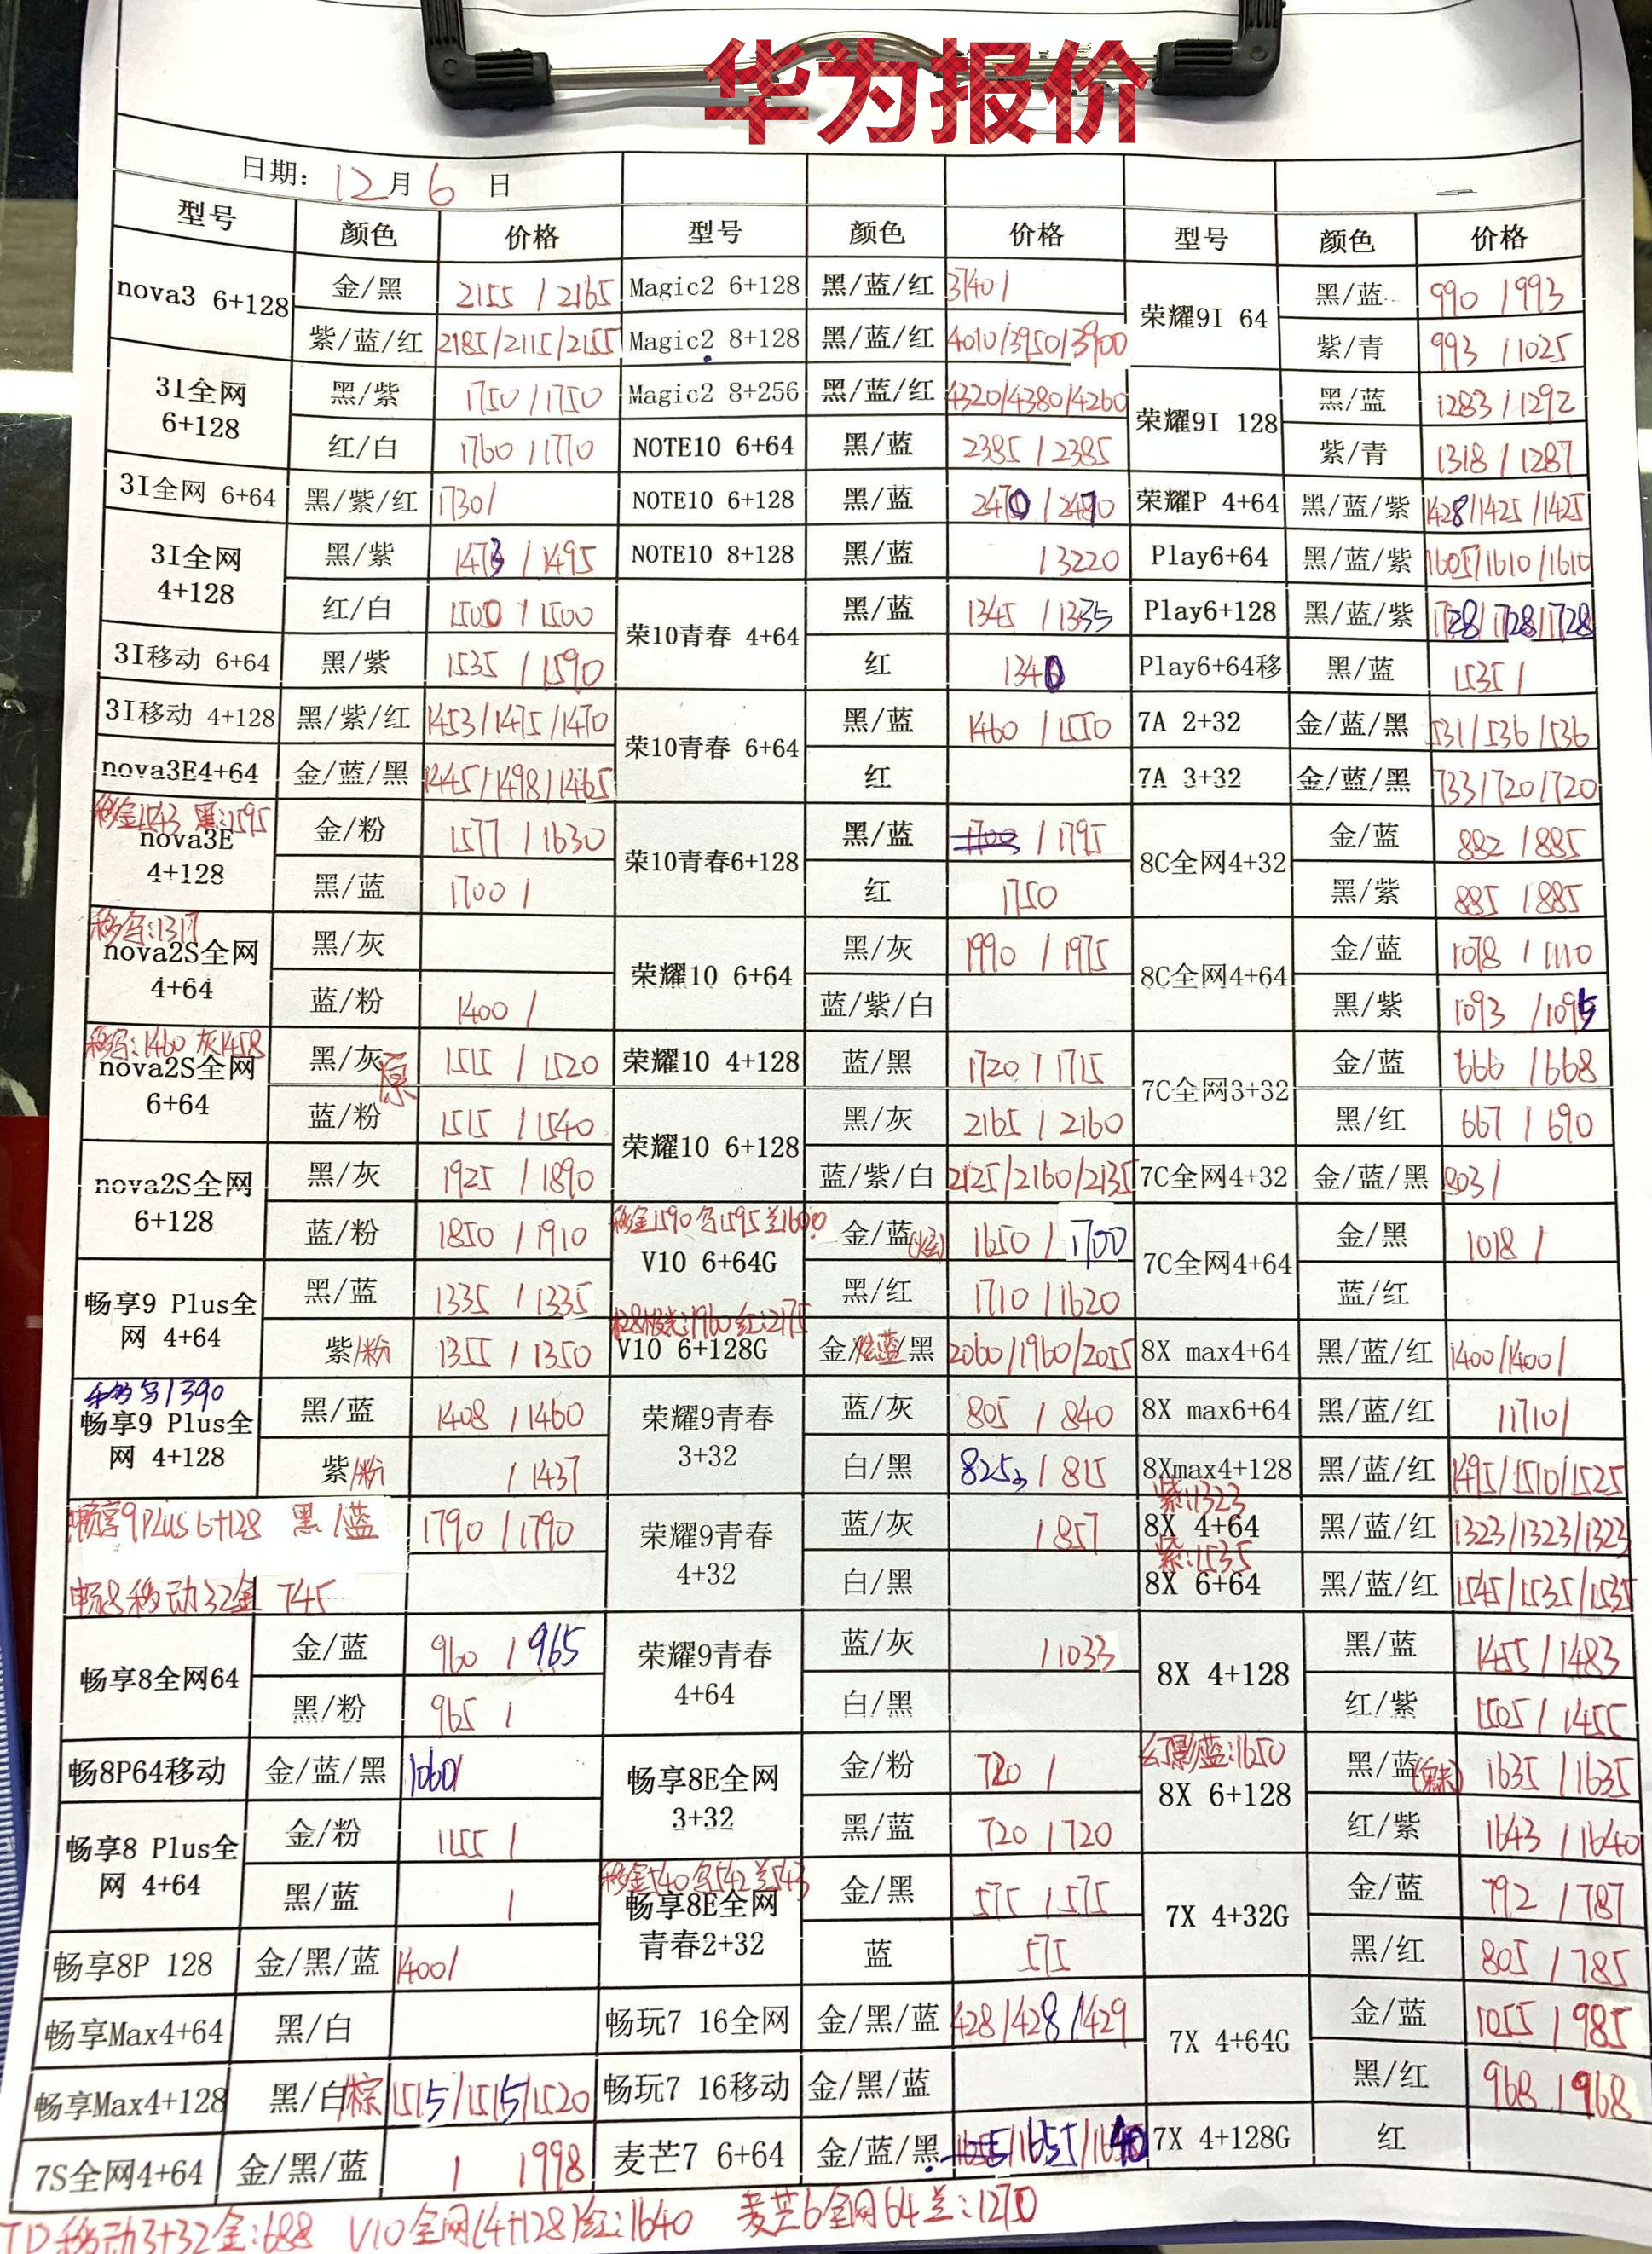 华为报价
日期: 12月6日
型号 颜色 价格 型号 颜色 价格 型号 颜色 价格
nova3 6+128 金/黑 2155 / 2165 Magic2 6+128 黑/蓝/红 3740/ 荣耀9I 64 黑/蓝 990 / 993
紫/蓝/红 2185/2115/2155 Magic2 8+128 黑/蓝/红 4010/3950/3900 紫/青 993 / 1025
3I全网 6+128 黑/紫 1750 / 1750 Magic2 8+256 黑/蓝/红 4320/4380/4260 荣耀9I 128 黑/蓝 1283 / 1292
红/白 1760 / 1770 NOTE10 6+64 黑/蓝 2385 / 2385 紫/青 1318 / 1287
3I全网 6+64 黑/紫/红 1730/ NOTE10 6+128 黑/蓝 2470 / 2470 荣耀P 4+64 黑/蓝/紫 1428/1425/1425
3I全网 4+128 黑/紫 1473 / 1495 NOTE10 8+128 黑/蓝 / 3220 Play6+64 黑/蓝/紫 1605/1610/1610
红/白 1500 / 1500 荣10青春 4+64 黑/蓝 1345 / 1335 Play6+128 黑/蓝/紫 1728/1728/1728
3I移动 6+64 黑/紫 1535 / 1590 红 1340 Play6+64移 黑/蓝 1535 /
3I移动 4+128 黑/紫/红 1453/1475/1470 荣10青春 6+64 黑/蓝 1460 / 1550 7A 2+32 金/蓝/黑 531/536/536
nova3E4+64 金/蓝/黑 1445/1498/1465 红 7A 3+32 金/蓝/黑 733/720/720
移金1543 黑:1595
nova3E 4+128 金/粉 1577 / 1630 荣10青春6+128 黑/蓝 1700 / 1795 8C全网4+32 金/蓝 882 / 885
黑/蓝 1700 / 红 1750 黑/紫 885 / 885
nova2S全网 4+64 黑/灰 荣耀10 6+64 黑/灰 1990 / 1975 8C全网4+64 金/蓝 1078 / 1110
蓝/粉 1400 / 蓝/紫/白 黑/紫 1093 / 1095
nova2S全网 6+64 黑/灰 1515 / 1520 荣耀10 4+128 蓝/黑 1720 / 1715 7C全网3+32 金/蓝 666 / 668
蓝/粉 1515 / 1540 荣耀10 6+128 黑/灰 2165 / 2160 黑/红 667 / 690
nova2S全网 6+128 黑/灰 1925 / 1890 蓝/紫/白 2125/2160/2135 7C全网4+32 金/蓝/黑 803/
蓝/粉 1850 / 1910 V10 6+64G 金/蓝 1650 / 1700 7C全网4+64 金/黑 1018 /
畅享9 Plus全网 4+64 黑/蓝 1335 / 1335 黑/红 1710 / 1620 蓝/红
紫/粉 1355 / 1350 V10 6+128G 金/炫蓝/黑 2060/1960/2055 8X max4+64 黑/蓝/红 1400/1400/
畅享9 Plus全网 4+128 黑/蓝 1408 / 1460 荣耀9青春 3+32 蓝/灰 805 / 840 8X max6+64 黑/蓝/红 /1710/
紫/粉 / 1437 白/黑 825 / 815 8Xmax4+128 黑/蓝/红 1495/1510/1525
紫:1323
畅享9Plus 6+128 黑/蓝 1790 / 1790 荣耀9青春 4+32 蓝/灰 / 857 8X 4+64 黑/蓝/红 1323/1323/1323
紫:1535
畅8移动32金 745 白/黑 8X 6+64 黑/蓝/红 1545/1535/1535
畅享8全网64 金/蓝 960 / 965 荣耀9青春 4+64 蓝/灰 / 1033 8X 4+128 黑/蓝 1455 / 1483
黑/粉 965 / 白/黑 红/紫 1505 / 1455
幻影蓝:1650
畅8P64移动 金/蓝/黑 1060/ 畅享8E全网 3+32 金/粉 720 / 8X 6+128 黑/蓝 1635 / 1635
畅享8 Plus全网 4+64 金/粉 1155 / 黑/蓝 720 / 720 红/紫 1643 / 1640
黑/蓝 / 畅享8E全网 青春2+32 金/黑 575 / 575 7X 4+32G 金/蓝 792 / 787
畅享8P 128 金/黑/蓝 1400/ 蓝 575 黑/红 805 / 785
畅享Max4+64 黑/白 畅玩7 16全网 金/黑/蓝 428/428/429 7X 4+64G 金/蓝 1055 / 985
畅享Max4+128 黑/白/棕 1515/1515/1520 畅玩7 16移动 金/黑/蓝 黑/红 968 / 968
7S全网4+64 金/黑/蓝 / 1998 麦芒7 6+64 金/蓝/黑 /1655/1640 7X 4+128G 红
移动3+32金:688 V10全网(4+128)红:1640 麦芒6全网64兰:1270